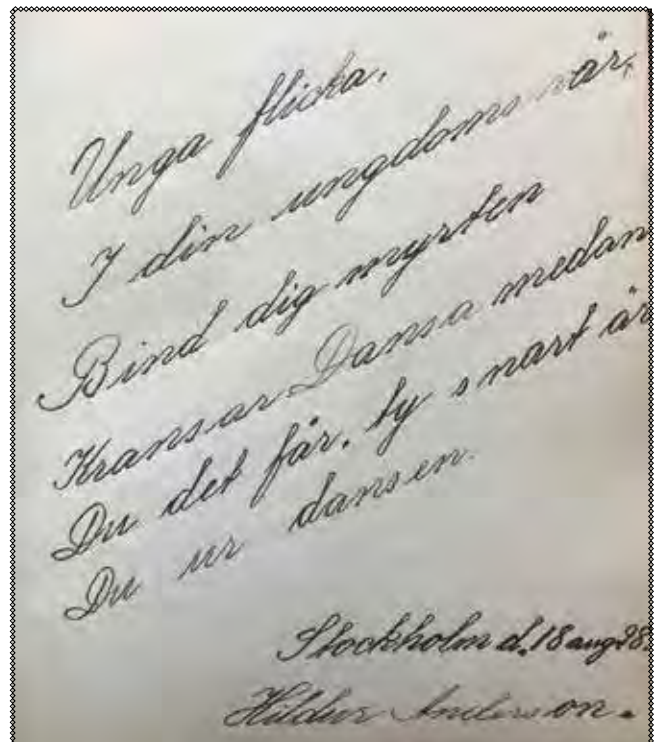 Unga flicka.
I din ungdoms vår,
Bind dig myrten
Kransar Dansa medan
Du det får. ty snart är
Du ur dansen.
Stockholm d. 18 aug 28.
Hildur Anderson.